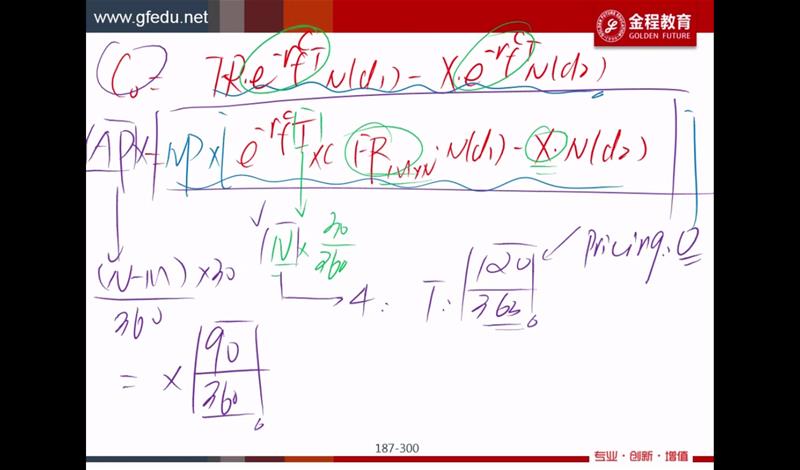 www.gfedu.net
金程教育
GOLDEN FUTURE
C₀ = FR·e^(-r_f^c T) N(d₁) − X·e^(-r_f^c T) N(d₂)
(AP)× = NP × [ e^(-r_f^c T) × ( FR_M×N · N(d₁) − X · N(d₂)
N × 30/360
Pricing: 0
(N−M) × 30 / 360
4
T: 120/360
= × 90/360
187-300
专业·创新·增值